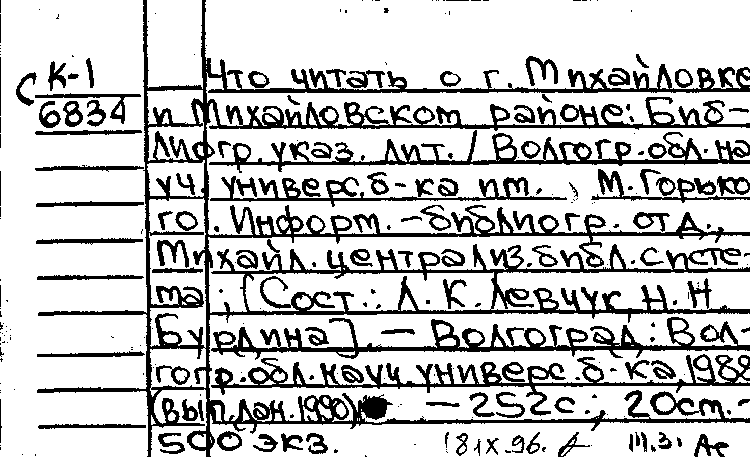 С К-1
6834
Что читать о г. Михайловке
и Михайловском районе: Биб-
лиогр. указ. лит. / Волгогр. обл. на
уч. универс. б-ка им. М. Горько
го. Информ.-библиогр. отд.,
Михайл. централиз. библ. систе-
ма; [Сост.: Л. К. Левчук, Н. Н.
Бурдина]. — Волгоград: Вол-
гогр. обл. науч. универс. б-ка, 1988
(вып. дан. 1990). — 252 с.; 20 см. —
500 экз. 18 IX. 96.